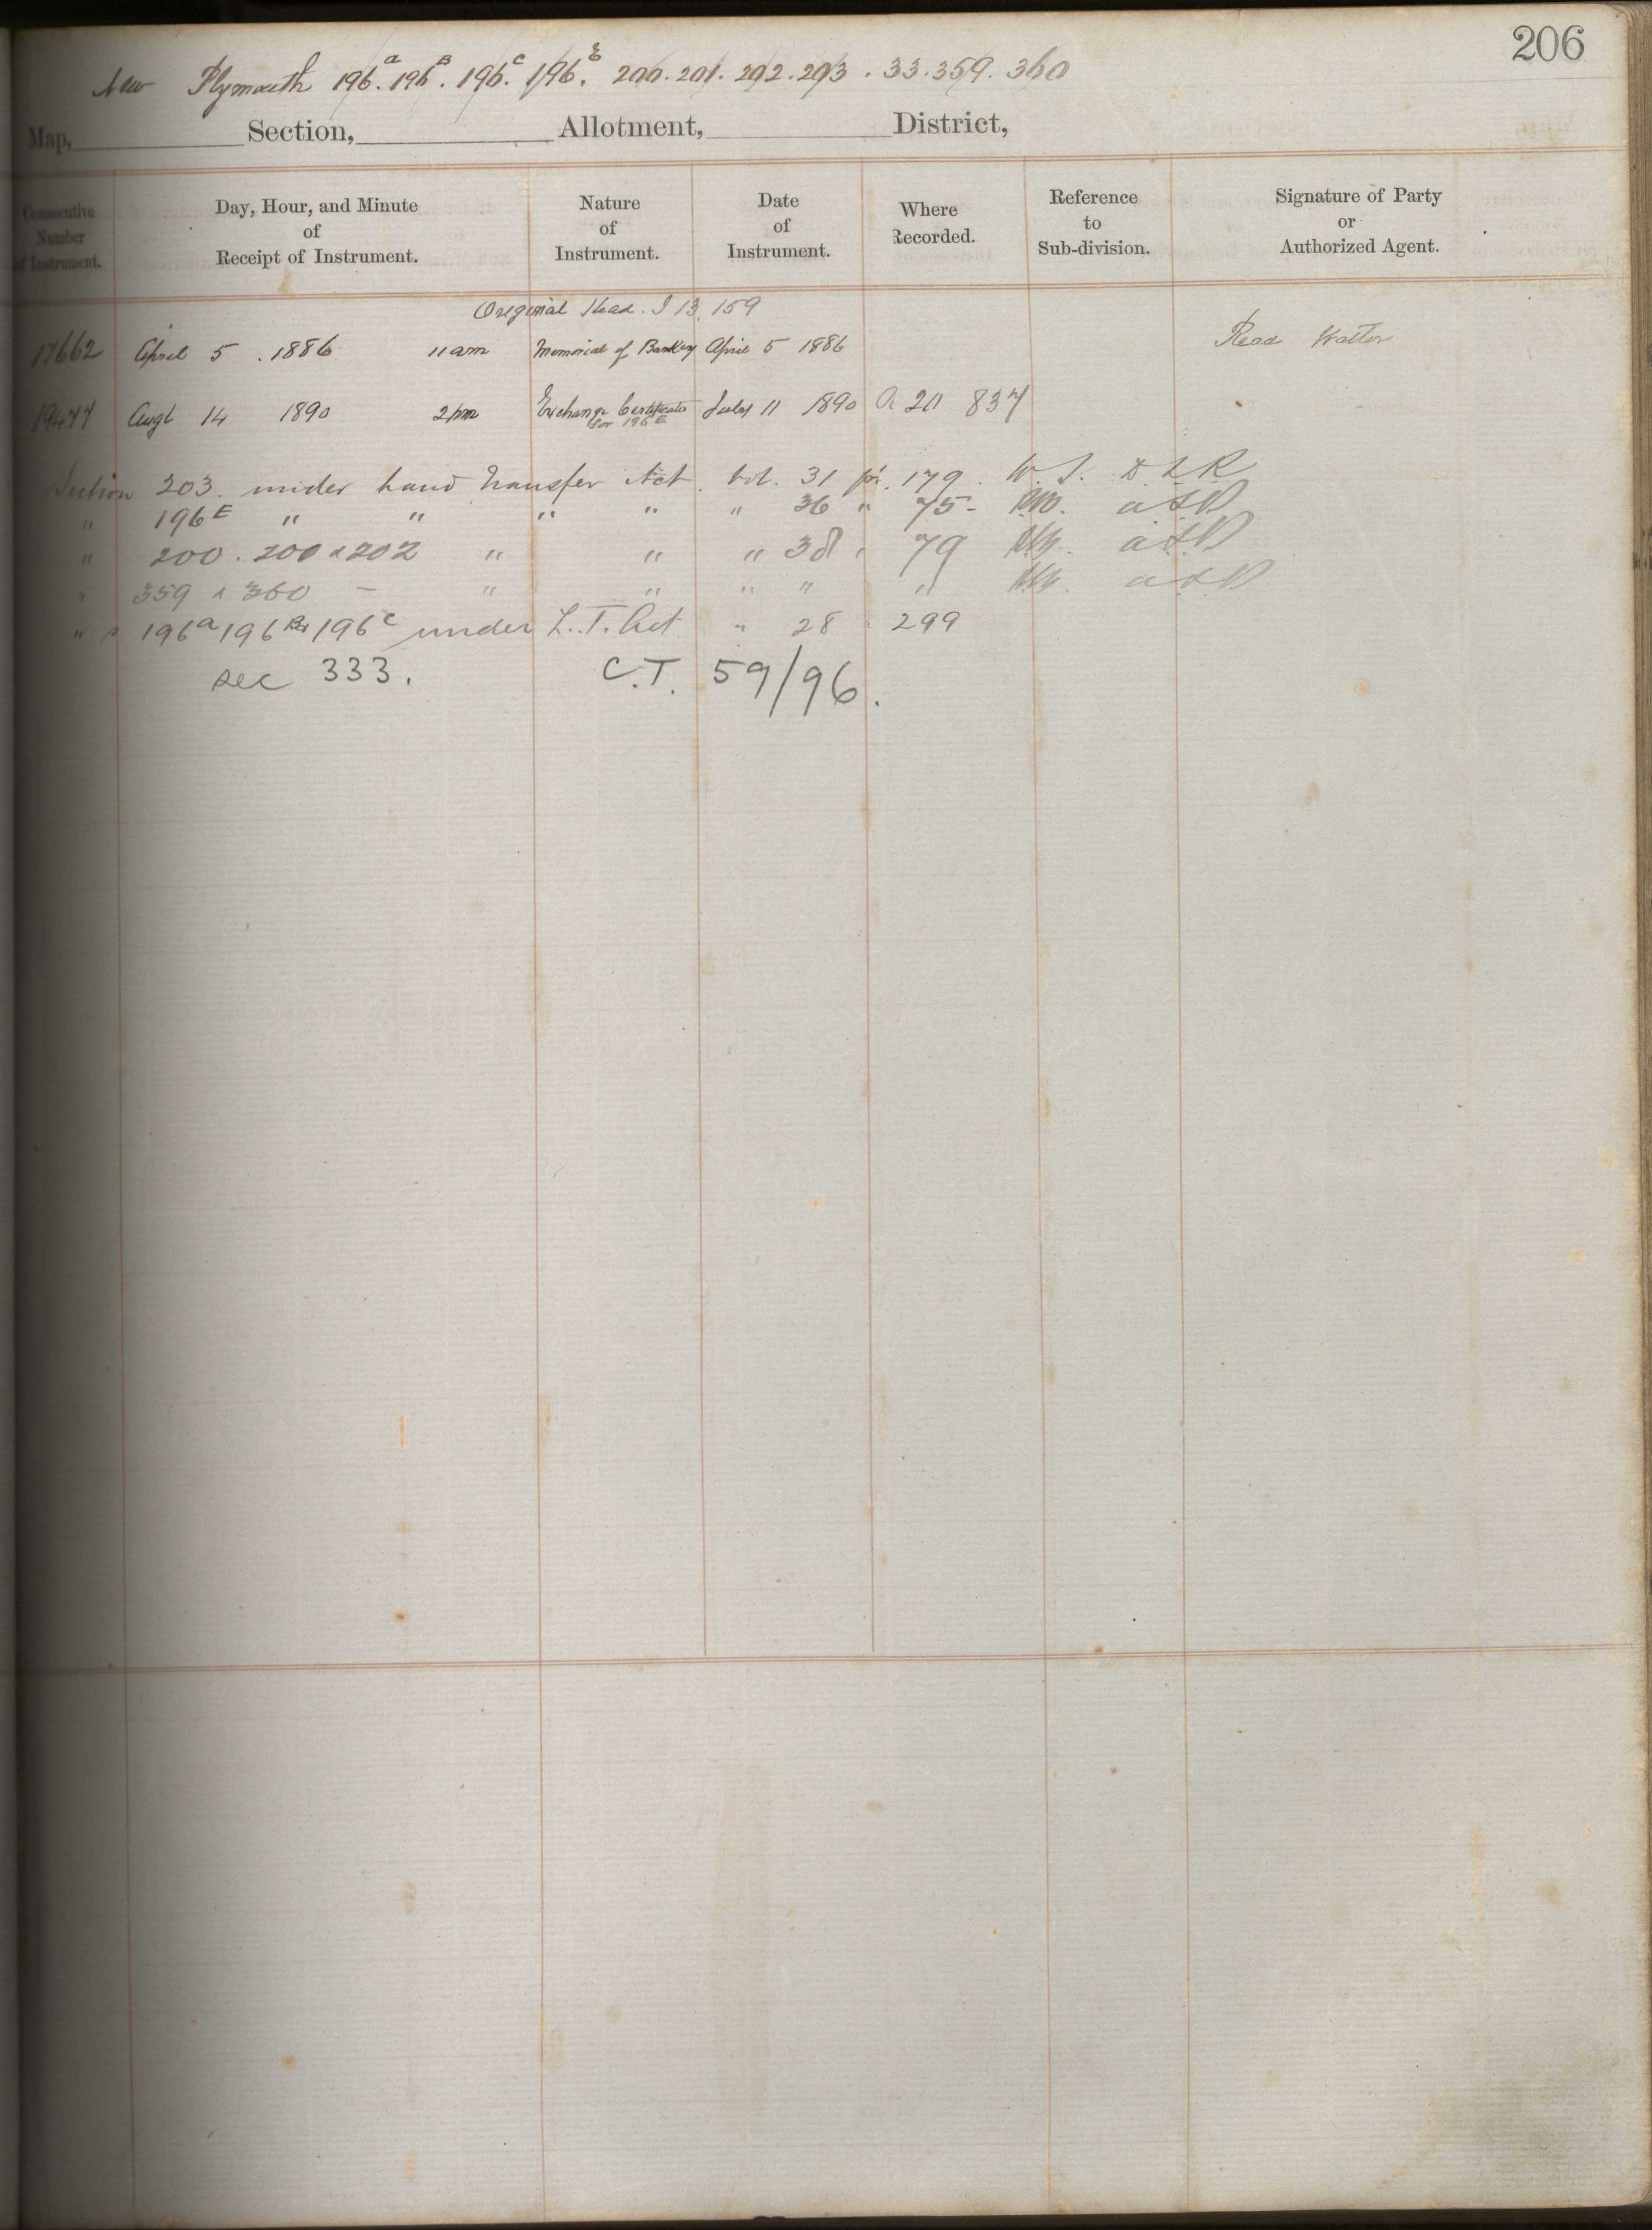 206
New Plymouth 196.ᵃ 196ᴮ. 196.ᶜ 196.ᴱ 200. 201. 202. 203. 33. 359. 360
Map, Section, Allotment, District,
Consecutive Number of Instrument.
Day, Hour, and Minute of Receipt of Instrument.
Nature of Instrument.
Date of Instrument.
Where Recorded.
Reference to Sub-division.
Signature of Party or Authorized Agent.
Original Head. I 13. 159
17662 April 5 . 1886 11 am Memorial of Bankcy April 5 1886 Read Walter
19477 Augt 14 1890 2 pm Exchange Certificate July 11 1890 A 20 837
for 196 E
Section 203. under Land Transfer Act. Vol. 31 fo. 179. W. S. D L R
" 196ᴱ " " " " " 36 " 75 - A L R
" 200. 200 & 202 " " " 38 " 79 A L R
" 359 & 360 - " " " " " A L R
" 196ᵃ 196ᴮ & 196ᶜ under L. T. Act " 28 " 299
sec 333. C.T. 59/96.